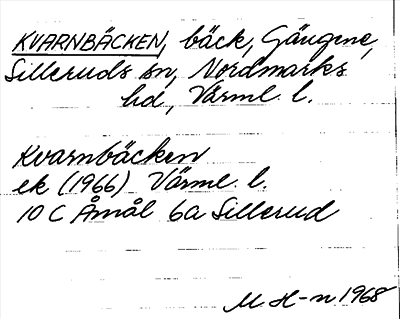 KVARNBÄCKEN, bäck, Gängene,
Silleruds sn, Nordmarks
hd, Värml. l.
Kvarnbäcken
ek (1966) Värml. l.
10 C Åmål 6a Sillerud
M. H-n 1968